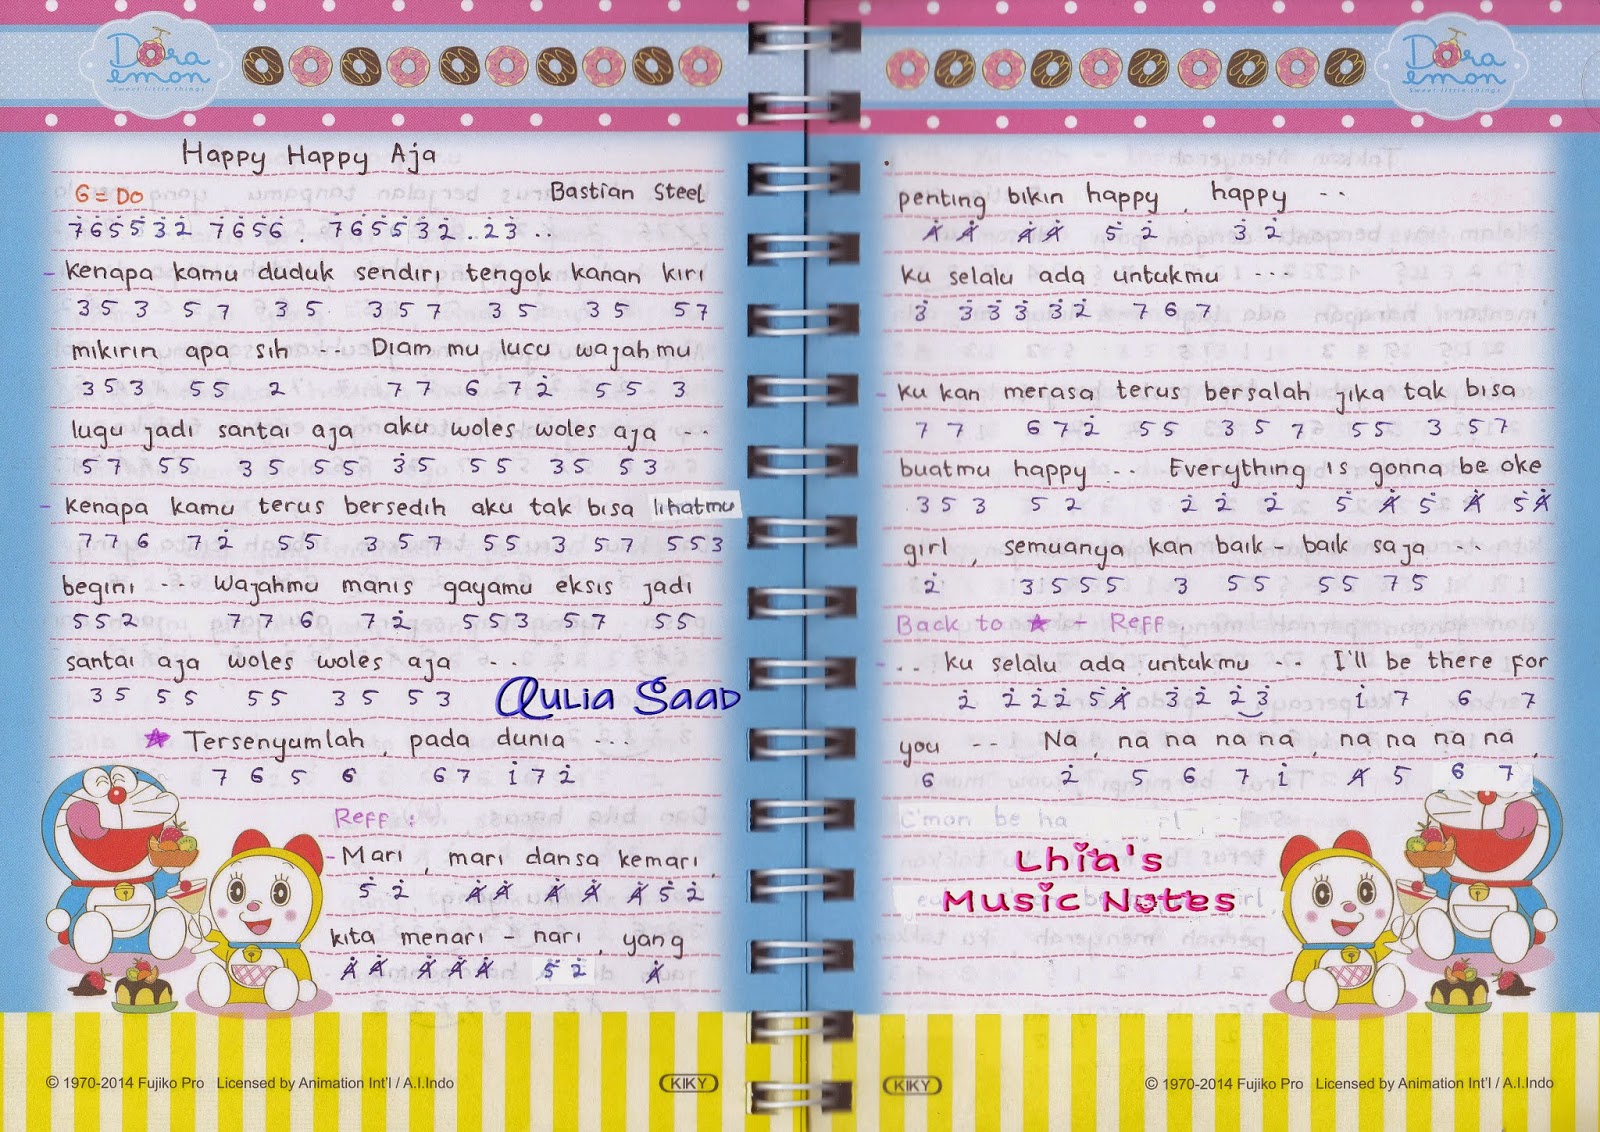 Dora
emon
Sweet little things
Happy Happy Aja
G = Do Bastian Steel
7 6 5 5 3 2 7 6 5 6 . 7 6 5 5 3 2 . . 2 3 . .
- Kenapa kamu duduk sendiri tengok kanan kiri
3 5 3 5 7 3 5 3 5 7 3 5 3 5 5 7
mikirin apa sih ... Diam mu lucu wajahmu
3 5 3 5 5 2 7 7 6 7 2̇ 5 5 3
lugu jadi santai aja aku woles woles aja ..
5 7 5 5 3 5 5 5 3̇ 5 5 5 3 5 5 3
- kenapa kamu terus bersedih aku tak bisa lihatmu
7 7 6 7 2̇ 5 5 3 5 7 5 5 3 5 7 5 5 3
begini ... Wajahmu manis gayamu eksis jadi
5 5 2 7 7 6 7 2̇ 5 5 3 5 7 5 5
santai aja woles woles aja ...
3 5 5 5 5 5 3 5 5 3
Aulia Saad
★ Tersenyumlah, pada dunia ...
7 6 5 6 6 7 1̇ 7 2̇
Reff :
- Mari, mari dansa kemari,
5̇ 2̇ 4̸̇ 4̸̇ 4̸̇ 4̸̇ 4̸̇ 5̇ 2̇
kita menari - nari, yang
4̸̇ 4̸̇ 4̸̇ 4̸̇ 4̸̇ 5̇ 2̇ 4̸̇
© 1970-2014 Fujiko Pro Licensed by Animation Int'l / A.I.Indo
KIKY
Dora
emon
Sweet little things
penting bikin happy, happy ..
4̸̇ 4̸̇ 4̸̇ 4̸̇ 5̇ 2̇ 3̇ 2̇
ku selalu ada untukmu ...
3̇ 3̇ 3̇ 3̇ 3̇ 2̇ 7 6 7
- ku kan merasa terus bersalah jika tak bisa
7 7 6 7 2̇ 5 5 3 5 7 5 5 3 5 7
buatmu happy ... Everything is gonna be oke
3 5 3 5 2 2̇ 2̇ 2̇ 5̇ 4̸̇ 5̇ 4̸̇ 5̇ 4̸̇
girl, semuanya kan baik - baik saja ...
2̇ 3 5 5 5 3 5 5 5 5 7 5
Back to ★ - Reff
- .. ku selalu ada untukmu ... I'll be there for
2̇ 2̇ 2̇ 2̇ 5̇ 4̸̇ 3̇ 2̇ 2̇ 3̇ 1̇ 7 6 7
you ... Na, na na na na, na na na na,
6 2̇ 5 6 7 1̇ 4̸ 5 6 7
C'mon be ha
Lhia's
Music Notes
KIKY
© 1970-2014 Fujiko Pro Licensed by Animation Int'l / A.I.Indo